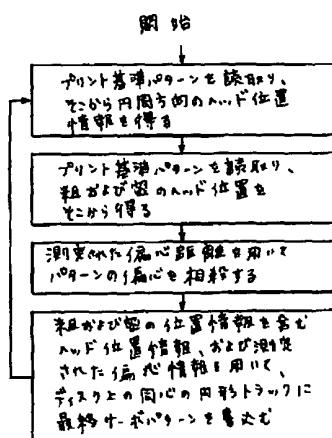 開始
プリント基準パターンを読取り、
そこから円周方向のヘッド位置
情報を得る
プリント基準パターンを読取り、
粗および密のヘッド位置を
そこから得る
測定された偏心距離を用いて
パターンの偏心を相殺する
粗および密の位置情報を含む
ヘッド位置情報、および測定
された偏心情報を用いて、
ディスク上の同心の円形トラックに
最終サーボパターンを書込む